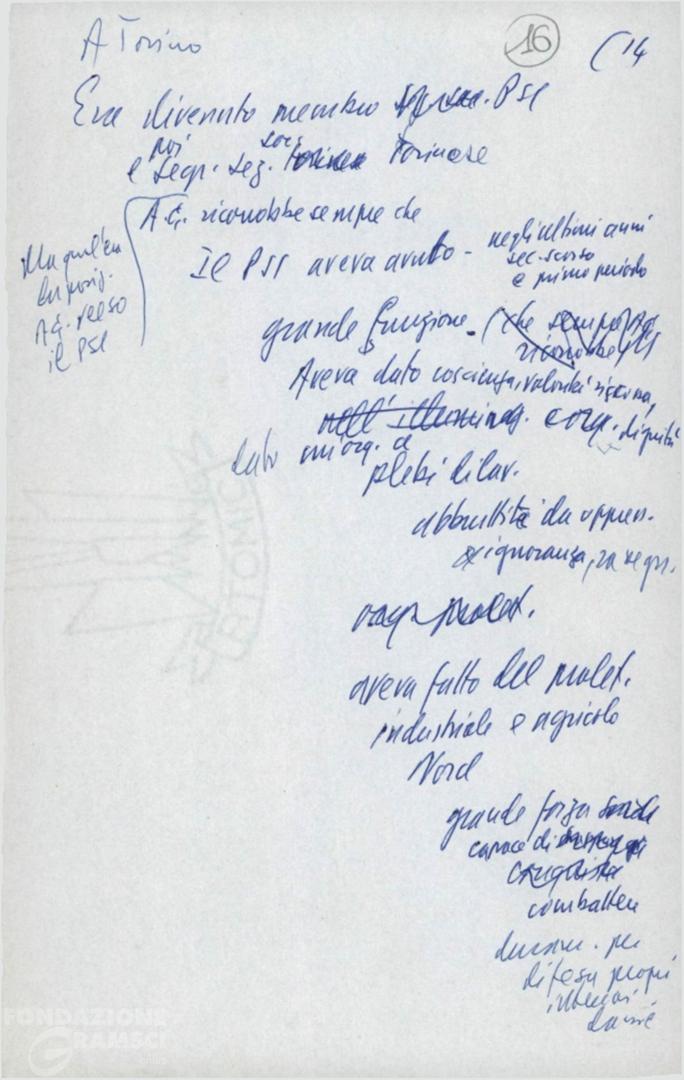 A Torino
16
14
Era divenuto membro PSI
poi soc.
e segr. sez. Torinese
A.G. riconobbe sempre che
negli ultimi anni
Il PSI aveva avuto - sec. scorso
e primo periodo
Ma qual'era
la posiz.
A.G. verso
il PSI
grande funzione. (che sempre AG
riconobbe)
Aveva dato coscienza, volontà
nell'illuminaz. dignità
dato un'org. a
plebi di lav.
abbruttite da oppress.
ignoranza,
prolet.
aveva fatto del prolet.
industriale e agricolo
Nord
grande forza sociale
capace di
combattere
per
difesa propri
interessi
FONDAZIONE
GRAMSCI